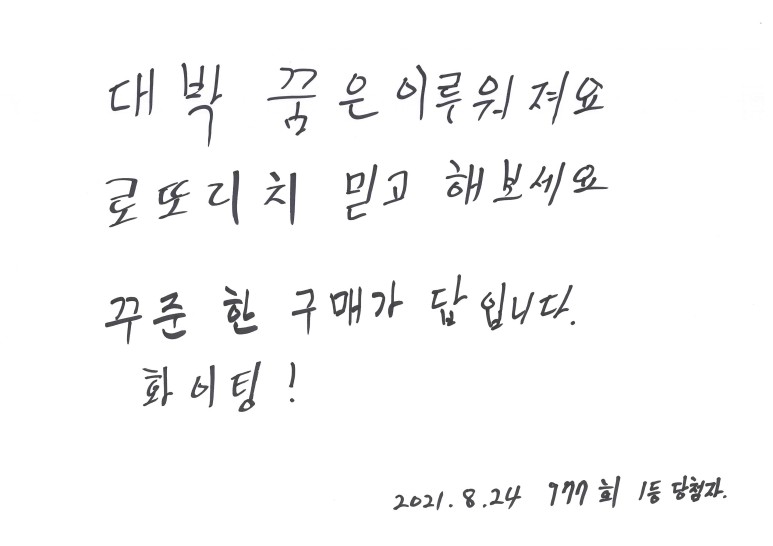 대박 꿈은 이루워져요
로또리치 믿고 해보세요
꾸준한 구매가 답입니다.
화이팅!
2021.8.24 977회 1등 당첨자.